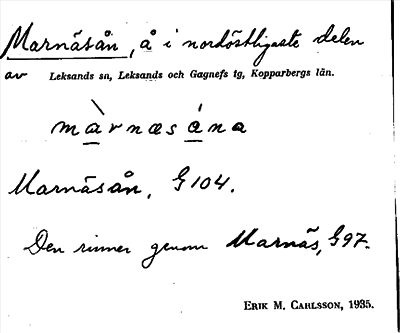 Marnäsån, å i nordöstligaste delen
av Leksands sn, Leksands och Gagnefs tg, Kopparbergs län.
màrnæsána
Marnäsån, G 104.
Den rinner genom Marnäs, G 97.
ERIK M. CARLSSON, 1935.